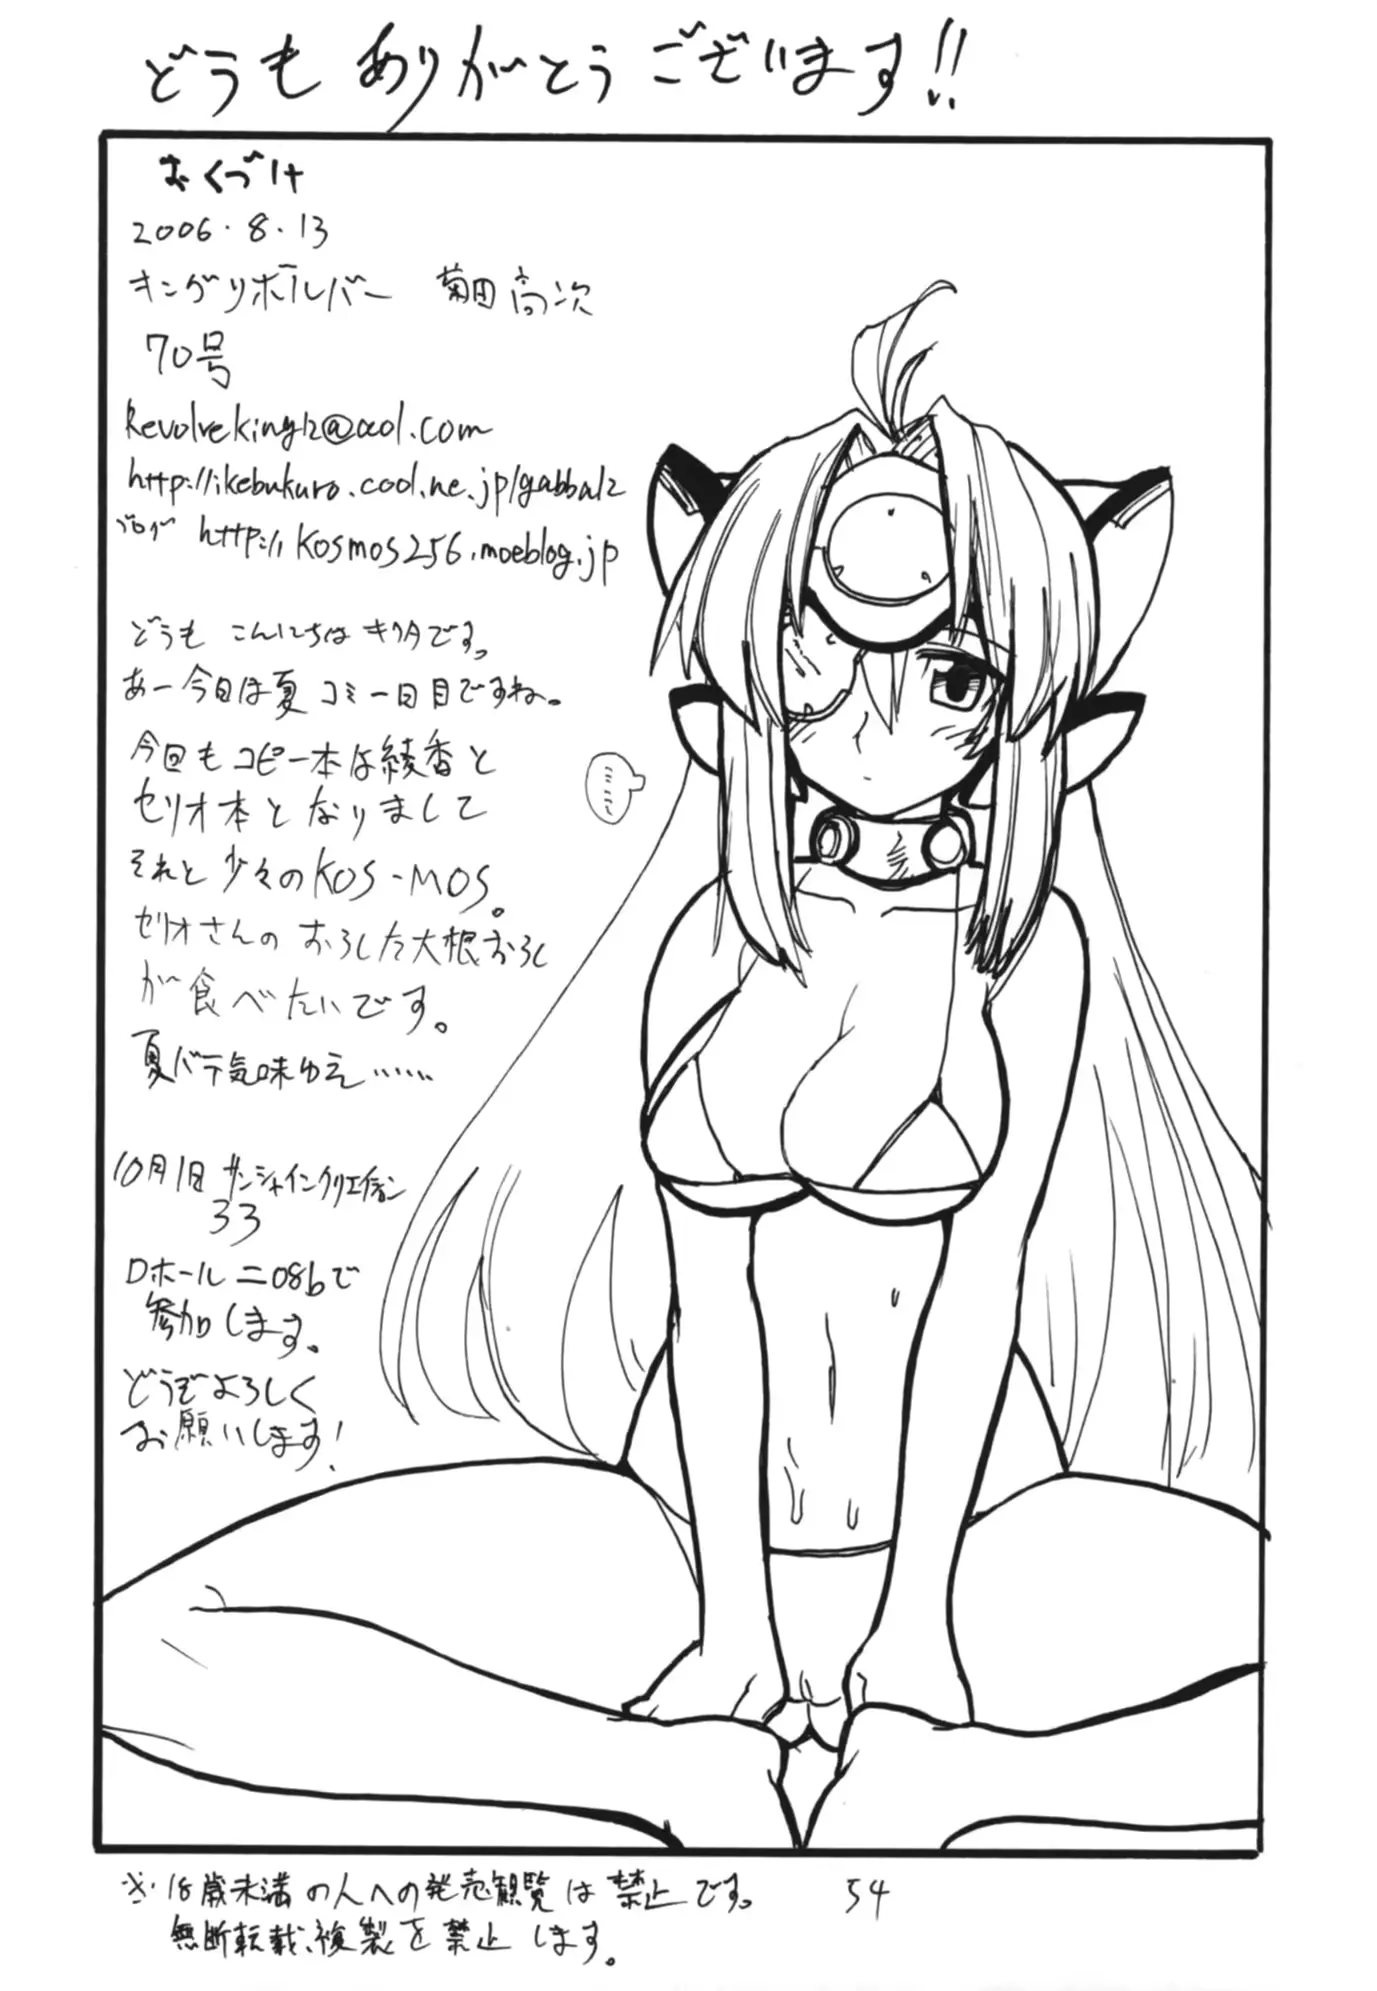 どうも ありがとうございます!!
おくづけ
2006.8.13
キングリボルバー 菊田高次
70号
Revolveking12@aol.com
http://ikebukuro.cool.ne.jp/gabba12
ブログ http://kosmos256.moeblog.jp
どうも こんにちは キクタです。
あー今日は夏コミ一日目ですね。
今回もコピー本は綾香と
セリオ本となりまして
それと少々のKOS-MOS。
セリオさんのおろした大根おろし
が食べたいです。
夏バテ気味ゆえ……
10月1日 サンシャインクリエイション
33
Dホール ニ08bで
参加します。
どうぞよろしく
お願いします!
……
※18歳未満の人への発売観覧は禁止です。
無断転載、複製を禁止します。
54